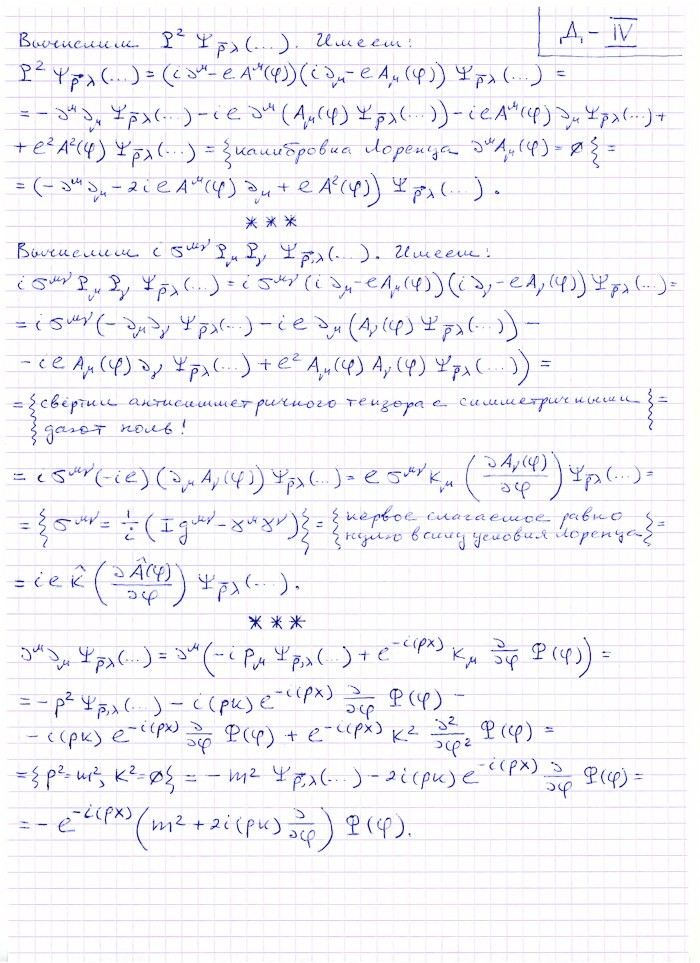 Д₁ – IV
Вычислим 𝒫² Ψ_{p̄λ}(...). Имеем:
𝒫² Ψ_{p̄λ}(...) = (i∂^μ – eA^μ(φ))(i∂_μ – eA_μ(φ)) Ψ_{p̄λ}(...) =
= – ∂^μ∂_μ Ψ_{p̄λ}(...) – ie ∂^μ(A_μ(φ) Ψ_{p̄λ}(...)) – ieA^μ(φ) ∂_μ Ψ_{p̄λ}(...) +
+ e²A²(φ) Ψ_{p̄λ}(...) = {калибровка Лоренца ∂^μA_μ(φ) = ∅} =
= (–∂^μ∂_μ – 2ieA^μ(φ) ∂_μ + eA²(φ)) Ψ_{p̄λ}(...).
***
Вычислим iσ^{μν} 𝒫_μ 𝒫_ν Ψ_{p̄,λ}(...). Имеем:
iσ^{μν} 𝒫_μ 𝒫_ν Ψ_{p̄λ}(...) = iσ^{μν}(i∂_μ – eA_μ(φ))(i∂_ν – eA_ν(φ)) Ψ_{p̄λ}(...) =
= iσ^{μν}(–∂_μ∂_ν Ψ_{p̄λ}(...) – ie ∂_μ(A_ν(φ) Ψ_{p̄λ}(...)) –
– ie A_μ(φ) ∂_ν Ψ_{p̄λ}(...) + e² A_μ(φ) A_ν(φ) Ψ_{p̄λ}(...)) =
= {свёртки антисимметричного тензора с симметричными} =
{дают ноль!}
= iσ^{μν}(–ie)(∂_μ A_ν(φ)) Ψ_{p̄λ}(...) = eσ^{μν} k_μ (∂A_ν(φ)/∂φ) Ψ_{p̄λ}(...) =
= {σ^{μν} = 1/i (I g^{μν} – γ^μγ^ν)} = {первое слагаемое равно
нулю в силу условия Лоренца} =
= ie k̂ (∂Â(φ)/∂φ) Ψ_{p̄λ}(...).
***
∂^μ∂_μ Ψ_{p̄λ}(...) = ∂^μ(–i p_μ Ψ_{p̄,λ}(...) + e^{–i(px)} k_μ ∂/∂φ Φ(φ)) =
= – p² Ψ_{p̄,λ}(...) – i(pk) e^{–i(px)} ∂/∂φ Φ(φ) –
– i(pk) e^{–i(px)} ∂/∂φ Φ(φ) + e^{–i(px)} k² ∂²/∂φ² Φ(φ) =
= {p² = m², k² = ∅} = – m² Ψ_{p̄,λ}(...) – 2i(pk) e^{–i(px)} ∂/∂φ Φ(φ) =
= – e^{–i(px)} (m² + 2i(pk) ∂/∂φ) Φ(φ).